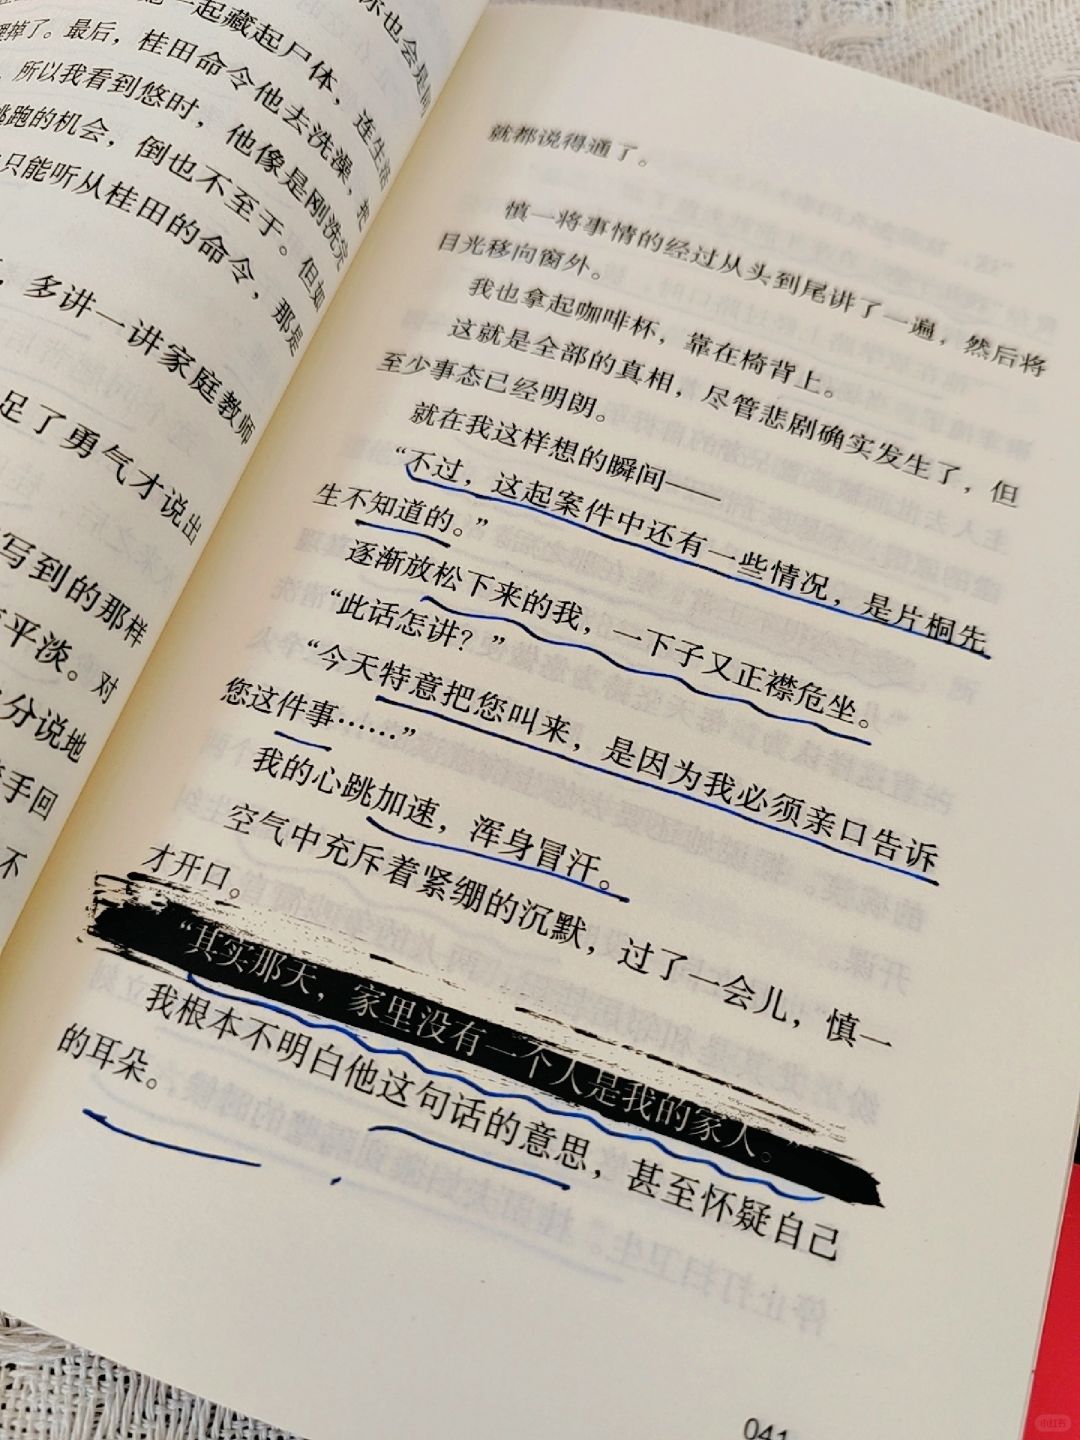 你也会是同
一起藏起尸体，连生活
理掉了。最后，桂田命令他去洗澡，把
，所以我看到悠时，他像是刚洗完
逃跑的机会，倒也不至于。但如
只能听从桂田的命令，那是
，多讲一讲家庭教师
足了勇气才说出
写到的那样
平淡。对
分说地
手回
不
就都说得通了。
慎一将事情的经过从头到尾讲了一遍，然后将
目光移向窗外。
我也拿起咖啡杯，靠在椅背上。
这就是全部的真相，尽管悲剧确实发生了，但
至少事态已经明朗。
就在我这样想的瞬间——
“不过，这起案件中还有一些情况，是片桐先
生不知道的。”
逐渐放松下来的我，一下子又正襟危坐。
“此话怎讲？”
“今天特意把您叫来，是因为我必须亲口告诉
您这件事……”
我的心跳加速，浑身冒汗。
空气中充斥着紧绷的沉默，过了一会儿，慎一
才开口。
“其实那天，家里没有一个人是我的家人。”
我根本不明白他这句话的意思，甚至怀疑自己
的耳朵。
041
小红书